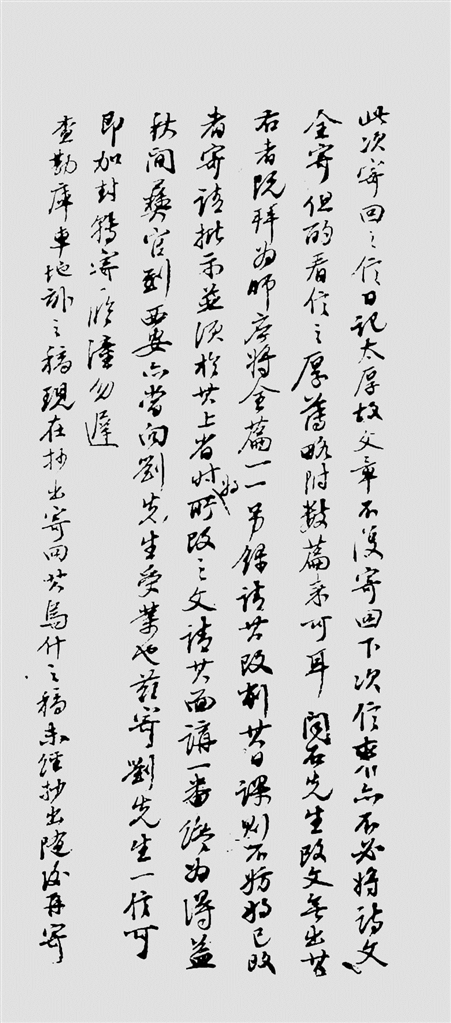 此次寄回之信日記太厚故文章不復寄回下次信來亦不必將詩文
全寄但酌看信之厚薄略附數篇來可耳 閻石先生改文無出其
右者既拜為師應將全篇一一另錄請其改削其日課則不妨將已改
者寄請批示並須於其上省時將所改之文請其面講一番終為得益
秋間彞官到西安亦當向劉先生受業也茲寄劉先生一信可
即加封轉寄臨潼勿遲
查勘庫車地畝之稿現在抄出寄回其烏什之稿未經抄出隨後再寄